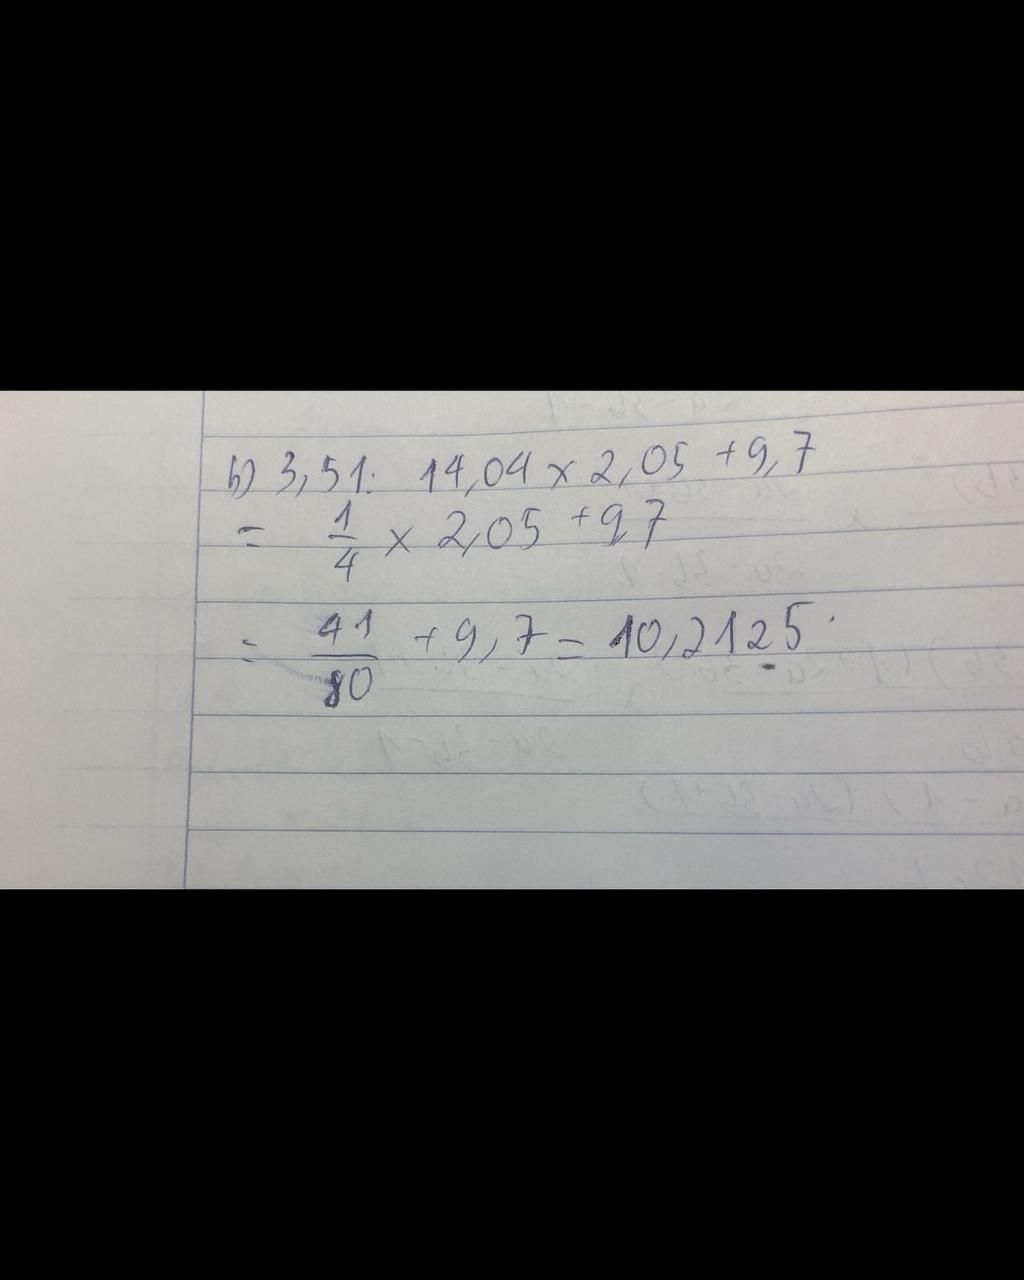 b) 3,51: 14,04 x 2,05 + 9,7
= 1/4 x 2,05 + 9,7
= 41/80 + 9,7 = 10,2125.